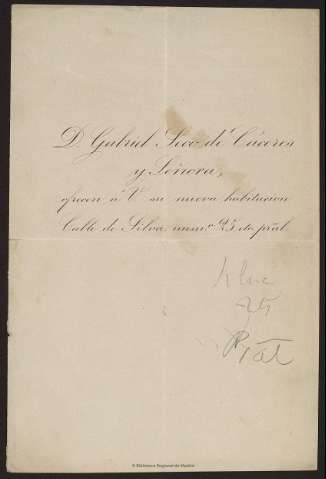 D. Gabriel Seco de Cáceres
y Señora,
ofrecen á V. su nueva habitacion
Calle de Silva num.º 25, pral
25
Pral
© Biblioteca Regional de Madrid